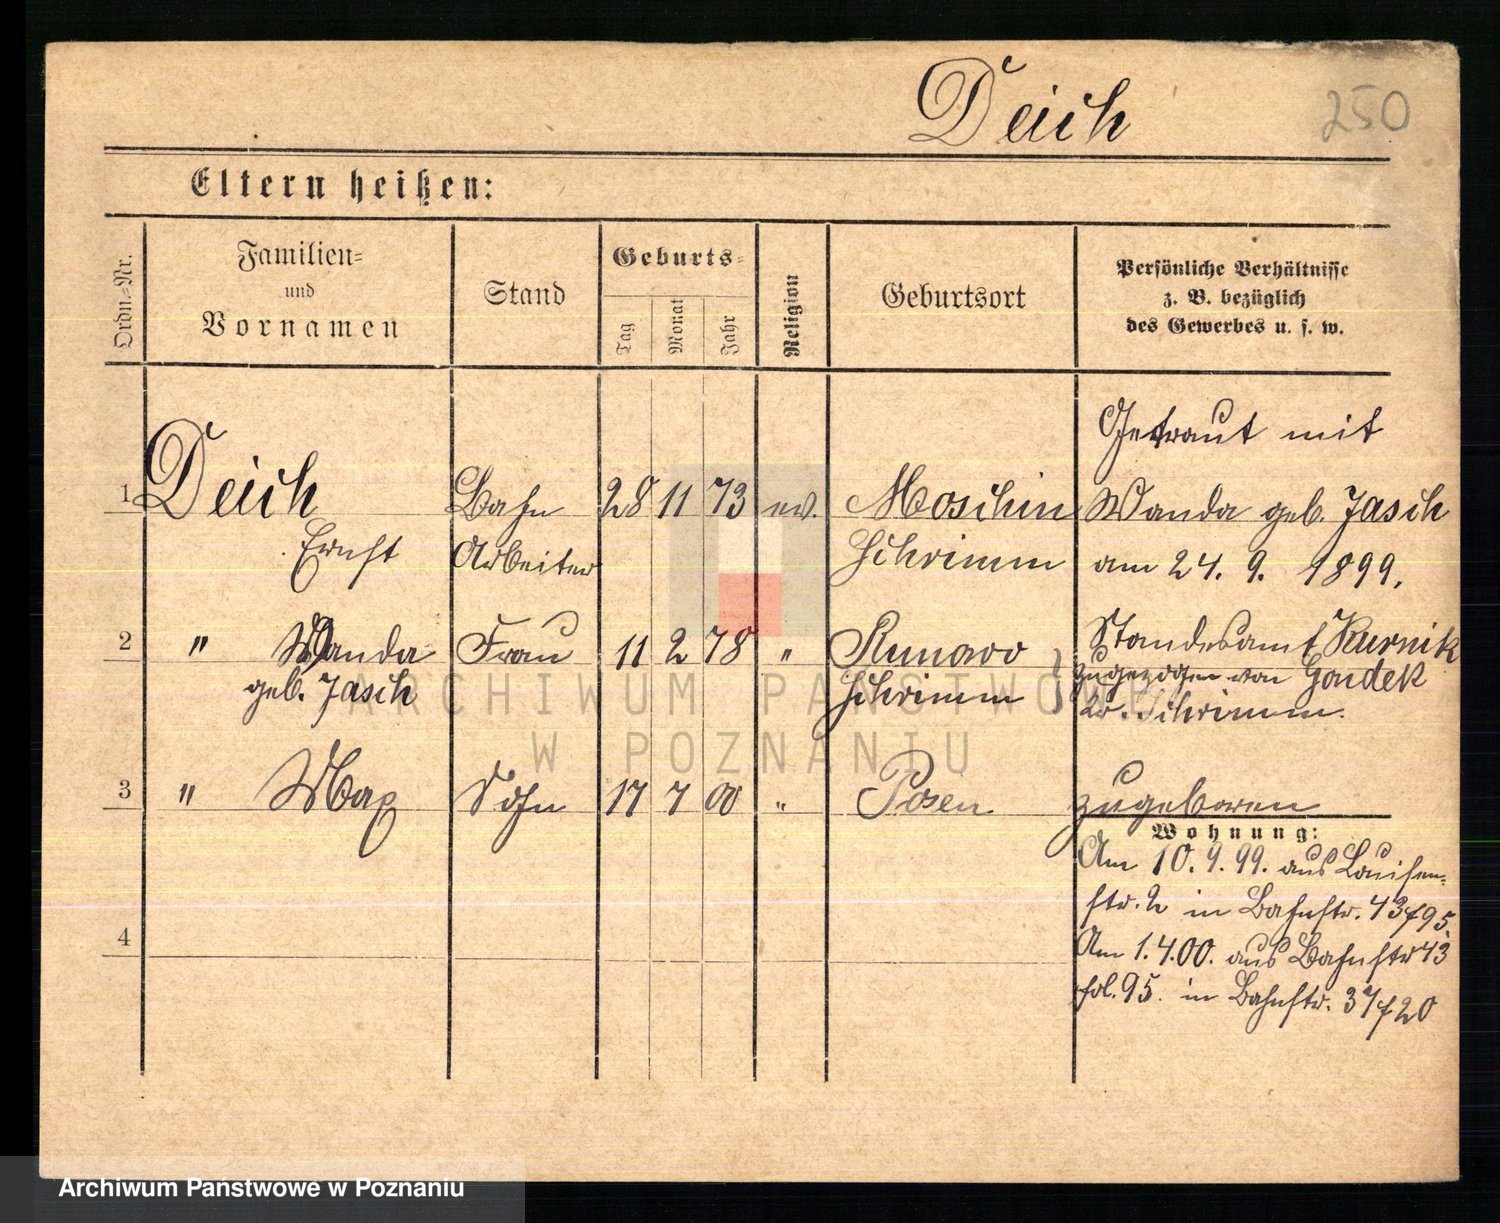 Deich
250
Eltern heißen:
Ordn.-Nr.
Familien-
und
Vornamen
Stand
Geburts-
Tag
Monat
Jahr
Religion
Geburtsort
Persönliche Verhältnisse
z. B. bezüglich
des Gewerbes u. s. w.
1 Deich Bahn 28 11 73 ev. Moschin
Ernst Arbeiter Schrimm
Getraut mit
Wanda geb. Jasch
am 24. 9. 1899.
2 " Wanda Frau 11 2 78 "
geb. Jasch Schrimm
Standesamt Kurnik
zugezogen von Gondek
Kr. Schrimm.
3 " Max Sohn 17 7 00 " Posen zugeboren
Wohnung:
Am 10. 9. 99. aus Louisen-
str. 2 in Bahnstr. 43 f 95.
Am 1. 4. 00. aus Bahnstr 43
fol. 95. in Bahnstr. 37 f 20
4
ARCHIWUM PAŃSTWOWE
W POZNANIU
Archiwum Państwowe w Poznaniu